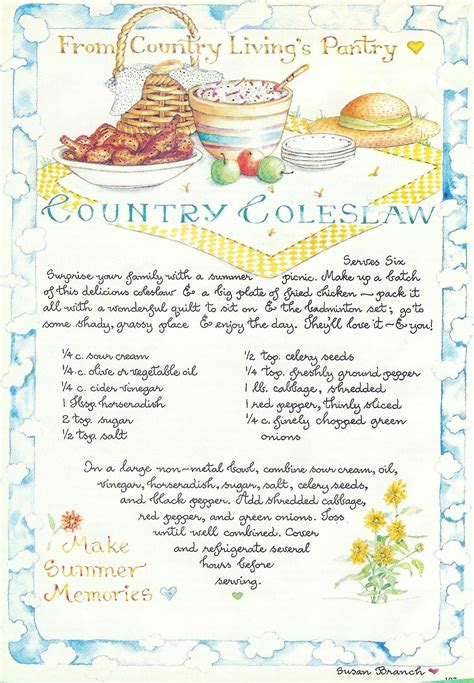 From Country Living's Pantry
COUNTRY COLESLAW
Serves Six
Surprise your family with a summer picnic. Make up a batch
of this delicious coleslaw & a big plate of fried chicken ~ pack it
all with a wonderful quilt to sit on & the badminton set; go to
some shady, grassy place & enjoy the day. They'll love it ~ & you!
1/4 c. sour cream
1/4 c. olive or vegetable oil
1/4 c. cider vinegar
1 tbsp. horseradish
2 tsp. sugar
1/2 tsp. salt
1/2 tsp. celery seeds
1/4 tsp. freshly ground pepper
1 lb. cabbage, shredded
1 red pepper, thinly sliced
1/4 c. finely chopped green
onions
In a large non-metal bowl, combine sour cream, oil,
vinegar, horseradish, sugar, salt, celery seeds,
and black pepper. Add shredded cabbage,
red pepper, and green onions. Toss
until well combined. Cover
and refrigerate several
hours before
serving.
Make
Summer
Memories
Susan Branch